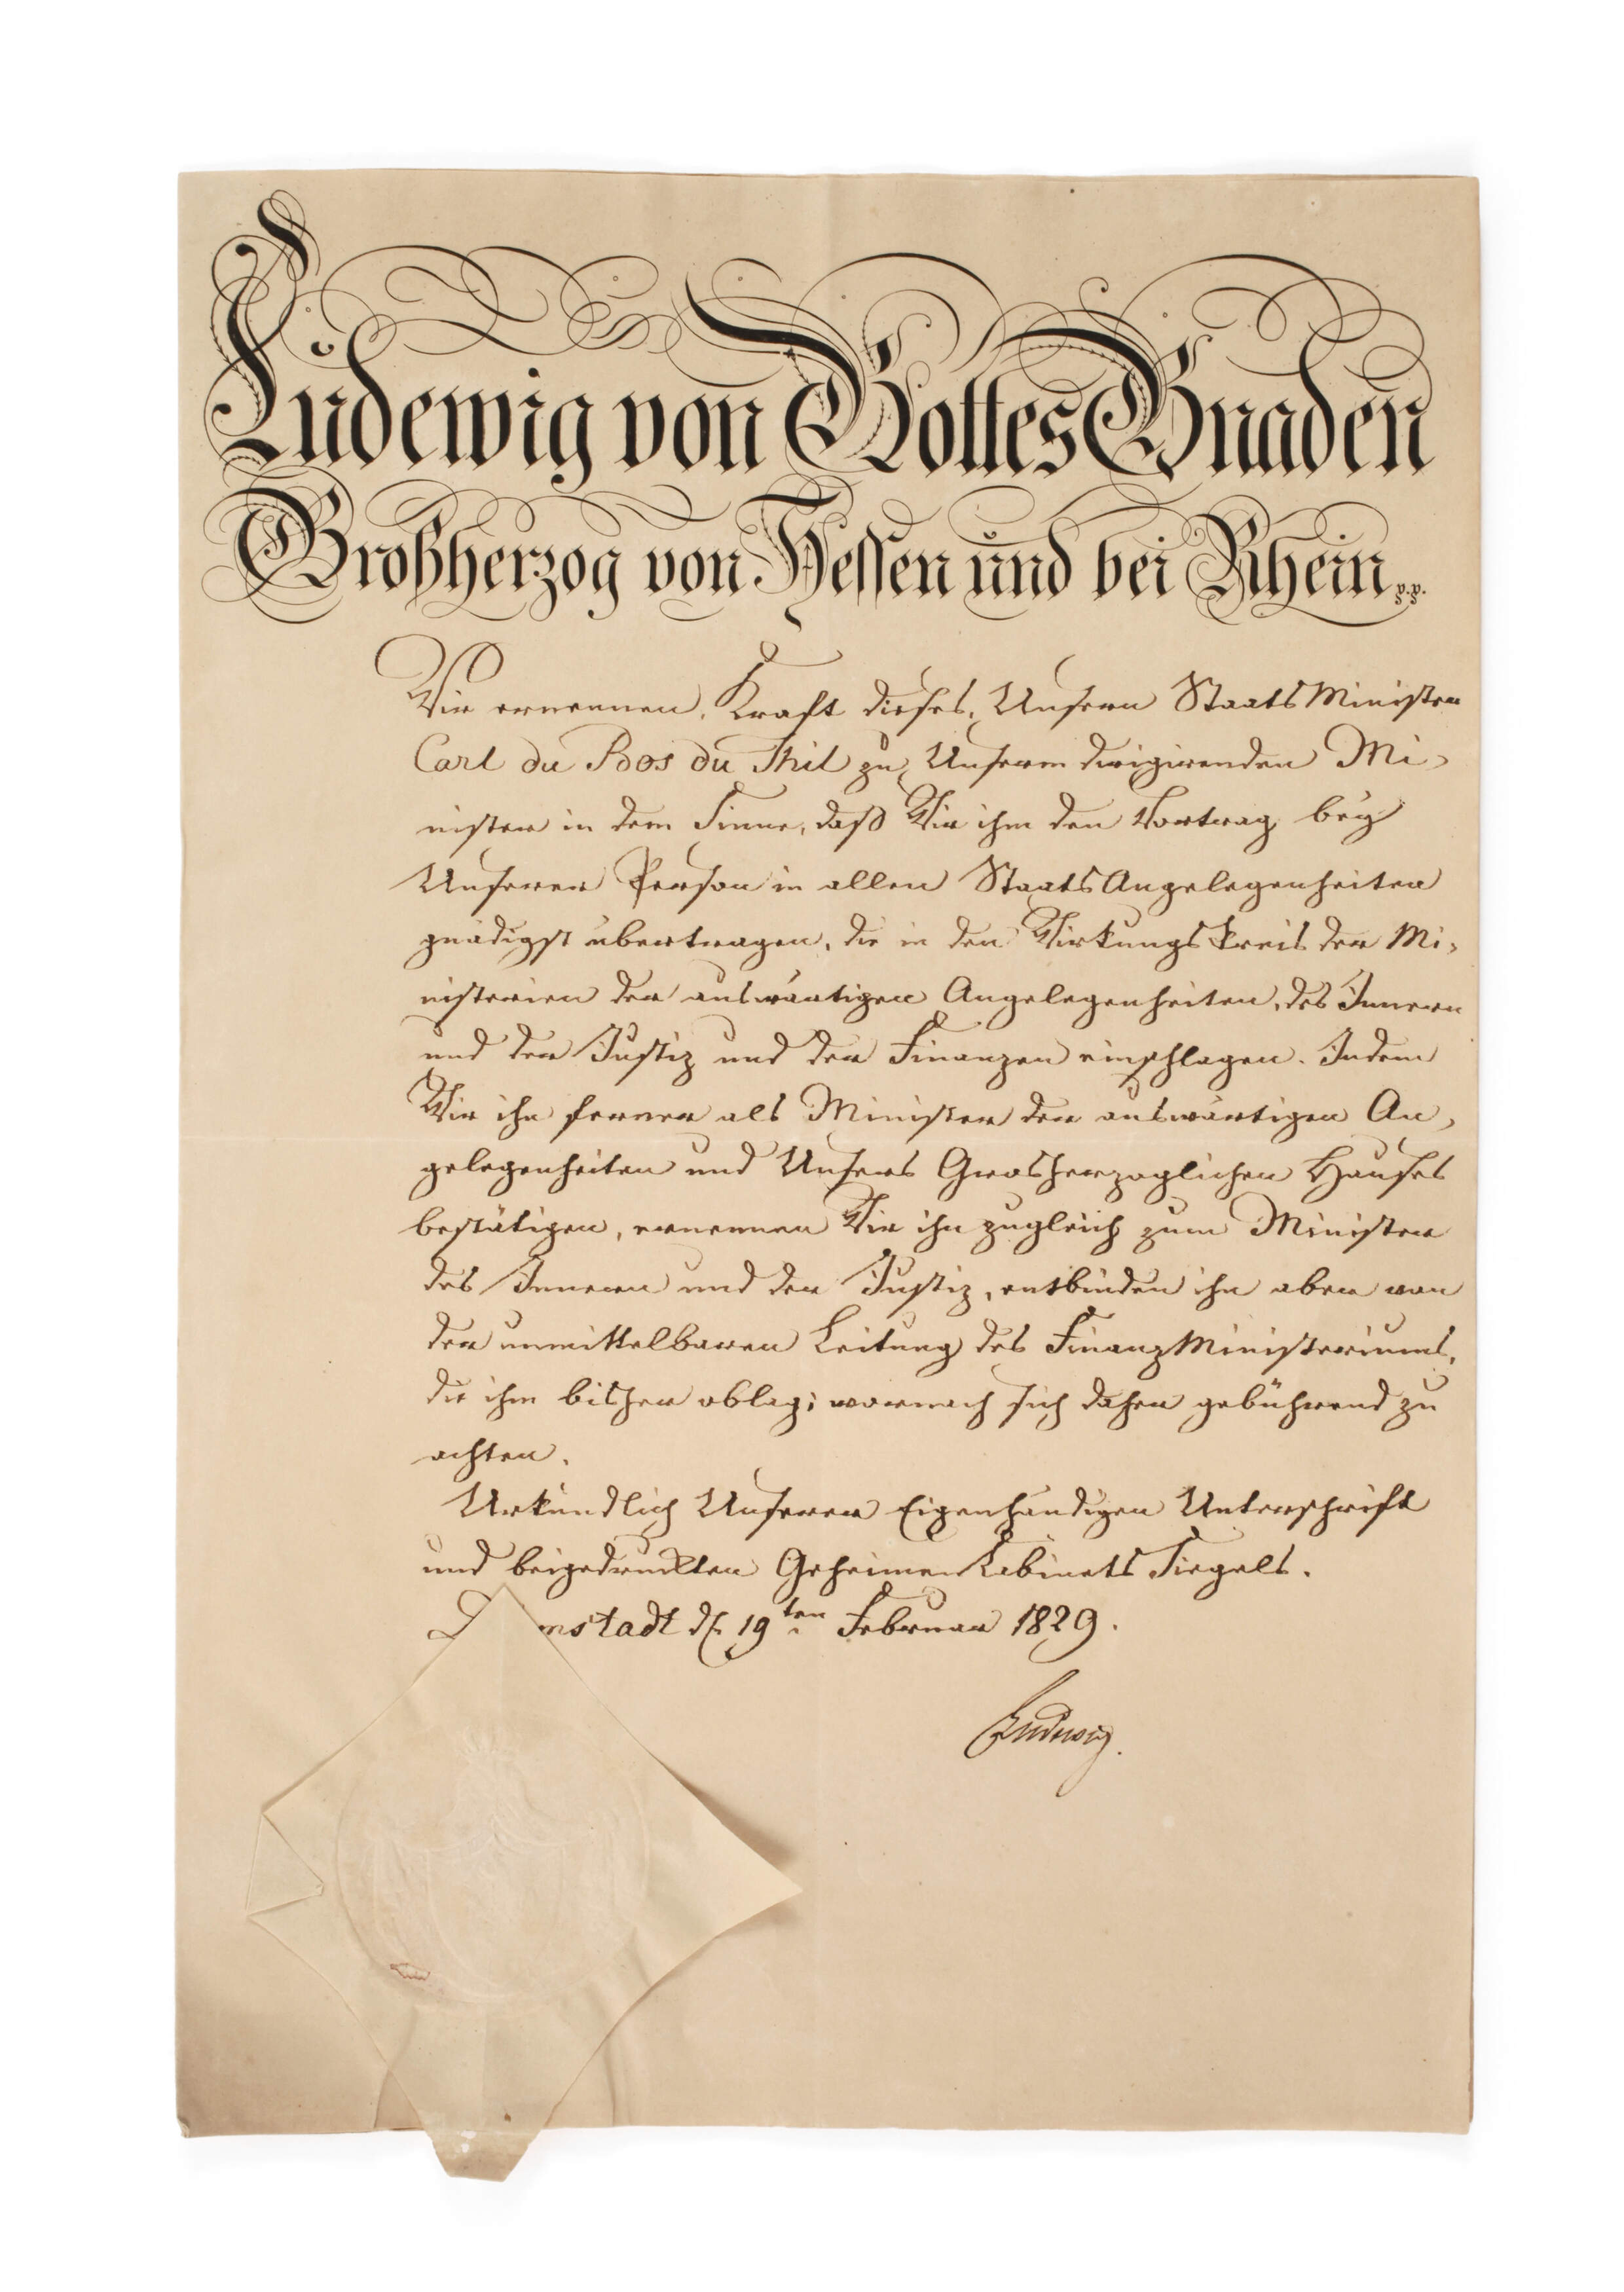 Ludewig von Gottes Gnaden
Großherzog von Hessen und bei Rhein p.p.
Wir ernennen, Kraft dieses, Unsern Staats Minister
Carl du Bos du Thil zu Unserm dirigirenden Mi-
nister in dem Sinne, daß Wir ihm den Vortrag bey
Unserer Person in allen Staats Angelegenheiten
gnädigst übertragen, die in den Wirkungs Kreis der Mi-
nisterien der auswärtigen Angelegenheiten, des Innern
und der Justiz und der Finanzen einschlagen. Indem
Wir ihn ferner als Minister der auswärtigen An-
gelegenheiten und Unsers Grosherzoglichen Hauses
bestätigen, ernennen Wir ihn zugleich zum Minister
des Innern und der Justiz, entbinden ihn aber von
der unmittelbaren Leitung des Finanz Ministeriums,
die ihm bisher oblag; wornach sich daher gebührend zu
achten.
Urkundlich Unserer Eigenhändigen Unterschrift
und beigedruckten Geheimen Kabinets Siegels.
D mstadt d. 19ten Februar 1829.
Ludewig.